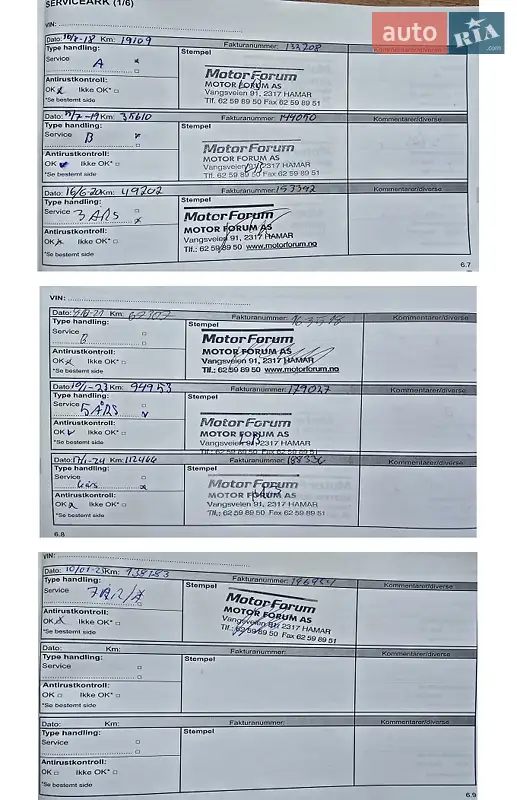 SERVICEARK (1/6)
auto RIA .com
VIN:
Dato: 16/7-18 Km: 19109 Fakturanummer: 133208 Kommentarer/diverse
Type handling: Stempel
Service A
Motor Forum
MOTOR FORUM AS
Antirustkontroll: Vangsveien 91, 2317 HAMAR
OK Ikke OK* Tlf. 62 59 89 50 Fax 62 59 89 51
*Se bestemt side
Dato: 5/7-19 Km: 35610 Fakturanummer: 144050 Kommentarer/diverse
Type handling: Stempel
Service B
Motor Forum
MOTOR FORUM AS
Antirustkontroll: Vangsveien 91, 2317 HAMAR
OK Ikke OK* Tlf. 62 59 89 50 Fax 62 59 89 51
*Se bestemt side
Dato: 16/6-20 Km: 49202 Fakturanummer: 153342 Kommentarer/diverse
Type handling: Stempel
Service 3 ÅRS
Motor Forum
MOTOR FORUM AS
Antirustkontroll: Vangsveien 91, 2317 HAMAR
OK Ikke OK* Tlf.: 62 59 89 50 www.motorforum.no
*Se bestemt side
6.7
VIN:
Dato: Km: 67307 Fakturanummer: Kommentarer/diverse
Type handling: Stempel
Service B
Motor Forum
Antirustkontroll: MOTOR FORUM AS
OK Ikke OK* Vangsveien 91, 2317 HAMAR
*Se bestemt side Tlf.: 62 59 89 50 www.motorforum.no
Dato: 10/1-23 Km: 94953 Fakturanummer: 179027 Kommentarer/diverse
Type handling: Stempel
Service 5 ÅRS
Motor Forum
Antirustkontroll: MOTOR FORUM AS
OK Ikke OK* Vangsveien 91, 2317 HAMAR
*Se bestemt side Tlf. 62 59 89 50 Fax 62 59 89 51
Dato: 17/1-24 Km: 112466 Fakturanummer: 188336 Kommentarer/diverse
Type handling: Stempel
Service 6års
Motor Forum
Antirustkontroll: MOTOR FORUM AS
OK Ikke OK* Vangsveien 91, 2317 HAMAR
*Se bestemt side Tlf.: 62 59 89 50 Fax 62 59 89 51
6.8
VIN:
Dato: Km: Fakturanummer: Kommentarer/diverse
Type handling: Stempel
Service
Motor Forum
Antirustkontroll: MOTOR FORUM AS
OK Ikke OK* Vangsveien 91, 2317 HAMAR
*Se bestemt side Tlf.: 62 59 89 50 Fax 62 59 89 51
Dato: Km: Fakturanummer: Kommentarer/diverse
Type handling: Stempel
Service
Antirustkontroll:
OK Ikke OK*
*Se bestemt side
Dato: Km: Fakturanummer: Kommentarer/diverse
Type handling: Stempel
Service
Antirustkontroll:
OK Ikke OK*
*Se bestemt side
6.9